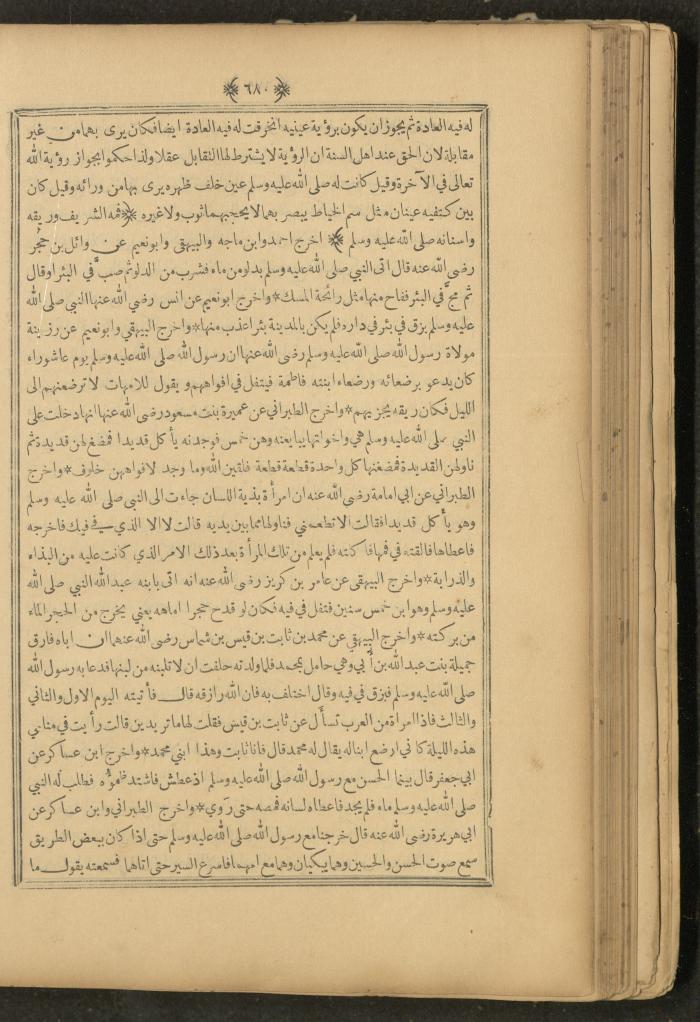 ٦٨٠
له فيه العادة ثم يجوز ان يكون برؤية عينيه انخرقت له فيه العادة ايضا فكان يرى بهما من غير
مقابلة لان الحق عند اهل السنة ان الرؤية لا يشترط لها التقابل عقلا ولذا حكموا بجواز رؤية الله
تعالى في الآخرة وقيل كانت له صلى الله عليه وسلم عين خلف ظهره يرى بها من ورائه وقيل كان
بين كتفيه عينان مثل سم الخياط يبصر بهما لا يحجبهما ثوب ولا غيره ﴿ فمه الشريف وريقه
واسنانه صلى الله عليه وسلم ﴾ اخرج احمد وابن ماجه والبيهقى وابو نعيم عن وائل بن حجر
رضى الله عنه قال اتى النبي صلى الله عليه وسلم بدلو من ماء فشرب من الدلو ثم صب في البئر او قال
ثم مج في البئر ففاح منها مثل رائحة المسك * واخرج ابو نعيم عن انس رضي الله عنها النبي صلى الله
عليه وسلم بزق في بئر في داره فلم يكن بالمدينة بئر اعذب منها * واخرج البيهقي وابو نعيم عن رزينة
مولاة رسول الله صلى الله عليه وسلم رضى الله عنها ان رسول الله صلى الله عليه وسلم يوم عاشوراء
كان يدعو برضعائه ورضعاء ابنته فاطمة فيتفل في افواههم و يقول للامهات لا ترضعنهم الى
الليل فكان ريقه يجزيهم * واخرج الطبراني عن عميرة بنت مسعود رضى الله عنها انها دخلت على
النبي صلى الله عليه وسلم هي واخواتها يبايعنه وهن خمس فوجدنه يأكل قديدا فمضغ لهن قديدة ثم
ناولهن القديدة فمضغنها كل واحدة قطعة قطعة فلقين الله وما وجد لافواههن خلوف * واخرج
الطبراني عن ابي امامة رضى الله عنه ان امرأة بذية اللسان جاءت الى النبي صلى الله عليه وسلم
وهو يأكل قديدا فقالت الا تطعمني فناولها مما بين يديه قالت لا الا الذي في فيك فاخرجه
فاعطاها فالقته في فمها فاكلته فلم يعلم من تلك المرأة بعد ذلك الامر الذي كانت عليه من البذاء
والذرابة * واخرج البيهقى عن عامر بن كريز رضى الله عنه انه اتى بابنه عبد الله النبي صلى الله
عليه وسلم وهو ابن خمس سنين فتفل في فيه فكان لو قدح حجرا اماهه يعني يخرج من الحجر الماء
من بركته * واخرج البيهقي عن محمد بن ثابت بن قيس بن شماس رضى الله عنهما ان اباه فارق
جميلة بنت عبد الله بن أبي وهي حامل بمحمد فلما ولدته حلفت ان لا تلبنه من لبنها فدعا به رسول الله
صلى الله عليه وسلم فبزق في فيه وقال اختلف به فان الله رازقه قال فأتيته اليوم الاول والثاني
والثالث فاذا امرأة من العرب تسأل عن ثابت بن قيس فقلت لها ما تريدين قالت رأيت في منامي
هذه الليلة كاني ارضع ابنا له يقال له محمد قال فانا ثابت وهذا ابني محمد * واخرج ابن عساكر عن
ابي جعفر قال بينما الحسن مع رسول الله صلى الله عليه وسلم اذ عطش فاشتد ظمؤه فطلب له النبي
صلى الله عليه وسلم ماء فلم يجد فاعطاه لسانه فمصه حتى روي * واخرج الطبراني وابن عساكر عن
ابي هريرة رضى الله عنه قال خرجنا مع رسول الله صلى الله عليه وسلم حتى اذا كان ببعض الطريق
سمع صوت الحسن والحسين وهما يبكيان وهما مع امهما فاسرع السير حتى اتاهما فسمعته يقول ما